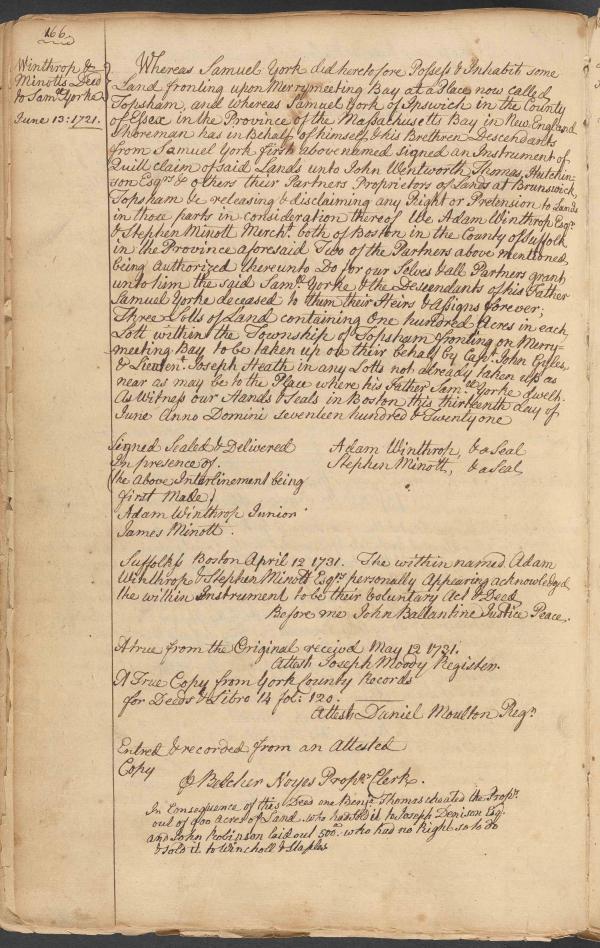 166.
Winthrop &
Minotts Deed
to Saml Yorke
June 13: 1721.
Whereas Samuel York did heretofore Possess & Inhabit some
Land fronting upon Merrymeeting Bay at a Place now called
Topsham, and whereas Samuel York of Ipswich in the County
of Essex in the Province of the Massachusetts Bay in New England
Shoreman has in Behalf of himself & his Brethren Descendants
from Samuel York first above named signed an Instrument of
Quitt claim of said Lands unto John Wentworth Thomas Hutchin-
son Esqrs & others their Partners Proprietors of Lands at Brunswick,
Topsham &c releasing & disclaiming any Right or Pretension to Lands
in those parts in consideration thereof We Adam Winthrop Esqr
& Stephen Minott Mercht both of Boston in the County of Suffolk
in the Province aforesaid Two of the Partners above mentioned,
being authorized thereunto Do for our Selves & all Partners grant
unto him the said Samll Yorke & the Descendants of his Father
Samuel Yorke deceased to them their Heirs & Assigns forever;
Three Lotts of Land containing One hundred Acres in each
Lott within the Township of Topsham fronting on Merry-
meeting Bay to be taken up on their behalf by Capt John Gyles
& Lieuten. Joseph Heath in any Lotts not already taken up as
near as may be to the Place where his Father Samll Yorke dwelt.
As Witness our Hands & Seals in Boston this thirteenth day of
June Anno Domini seventeen hundred & Twenty one
Signed Sealed & Delivered
In presence of.
the Above Interlinement being
first Made
Adam Winthrop Junior
James Minott.
Adam Winthrop, & a Seal
Stephen Minott, & a Seal
Suffolk ss Boston April 12 1731. The within named Adam
Winthrop & Stephen Minott Esqrs personally Appearing acknowledged
the within Instrument to be their Voluntary Act & Deed
Before me John Ballantine Justice Peace.
A true from the Original received May 12 1731.
Attest Joseph Moody Register.
A True Copy from York County Records
for Deeds &c Libro 14 fol: 120.
Attest Daniel Moulton Regr
Entred & recorded from an Attested
Copy
Belcher Noyes Proprs Clerk.
In Consequence of this Deed one Benja Thomas cheated the Proprs
out of 900 Acres of Land who had sold it to Joseph Denison Esq.
and John Robinson laid out 500a. who had no Right so to do
& sold it to Winchell & Staples